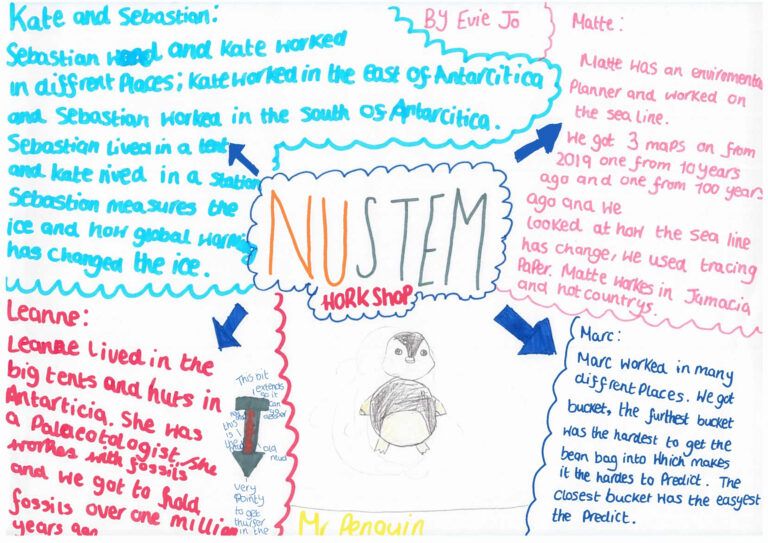 Kate and Sebastian:
Sebastian and Kate worked
in diffrent Places; Kate worked in the east of Antarcitica
and Sebastian worked in the south of Antarcitica.
Sebastian lived in a tent
and Kate rived in a station
Sebastian measures the
ice and how global warming
has changed the ice.
By Evie Jo
Matte:
Matte was an enviremental
Planner and worked on
the sea line.
We got 3 maps on from
2019 one from 10 years
ago and one from 100 years
ago and we
looked at how the sea line
has change, we used tracing
Paper. Matte workes in Jamacia
and not countrys.
NUSTEM
WORKSHOP
Leanne:
Leanne lived in the
big tents and huts in
Antarticia. She was
a Palaeotologist, she
workes with fossils
and we got to hold
fossils over one million
years ago
This bit
extends
so it
can
go
deeper
this
is
the
old
mud
very
pointy
to get
thurfer
in the
Mr Penguin
Marc:
Marc worked in many
diffrent Places. We got
bucket, the furthest bucket
was the hardest to get the
bean bag into which makes
it the hardes to Predict. The
closest bucket was the easyest
the Predict.